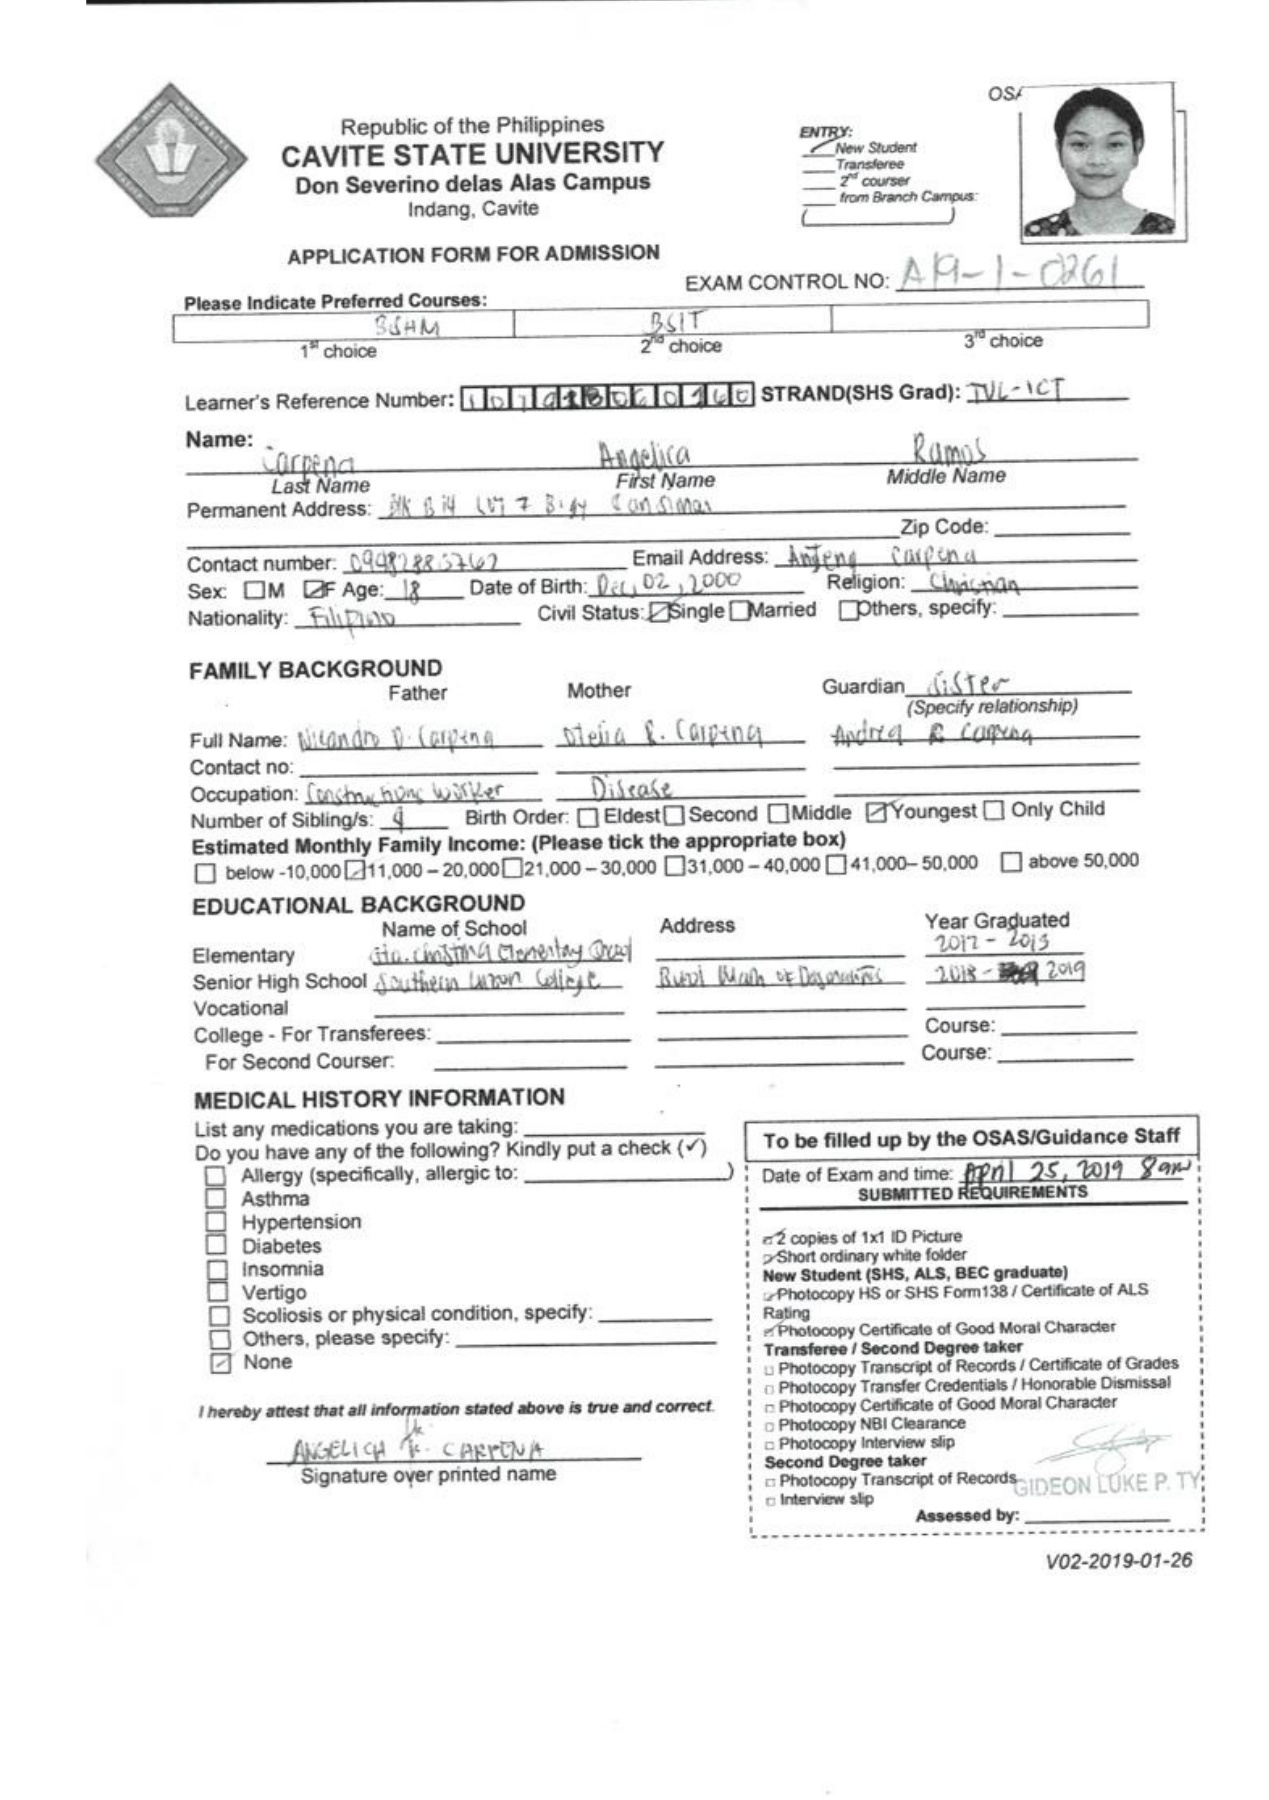 Republic of the Philippines
CAVITE STATE UNIVERSITY
Don Severino delas Alas Campus
Indang, Cavite
OSA
ENTRY:
New Student
Transferee
2nd courser
from Branch Campus:
APPLICATION FORM FOR ADMISSION
EXAM CONTROL NO: A19-1-0261
Please Indicate Preferred Courses:
BSHM BSIT
1st choice 2nd choice 3rd choice
Learner's Reference Number: STRAND(SHS Grad): TVL-ICT
Name:
Carpena Angelica Ramos
Last Name First Name Middle Name
Permanent Address: Blk B 14 Lot 7 Brgy
Zip Code:
Contact number: Email Address: Anjeng Carpena
Sex: M F Age: 18 Date of Birth: Dec, 02, 2000 Religion: Christian
Nationality: Filipino Civil Status: Single Married Others, specify:
FAMILY BACKGROUND
Father Mother Guardian Sister
(Specify relationship)
Full Name: Nicandro D. Carpena R. Carpena Andrea R Carpena
Contact no:
Occupation: Constructions Worker Disease
Number of Sibling/s: 4 Birth Order: Eldest Second Middle Youngest Only Child
Estimated Monthly Family Income: (Please tick the appropriate box)
below -10,000 11,000 – 20,000 21,000 – 30,000 31,000 – 40,000 41,000– 50,000 above 50,000
EDUCATIONAL BACKGROUND
Name of School Address Year Graduated
Elementary Sta. Christina Elementary School 2012 - 2013
Senior High School Southern Luzon College 2018 - 2019
Vocational
College - For Transferees: Course:
For Second Courser: Course:
MEDICAL HISTORY INFORMATION
List any medications you are taking:
Do you have any of the following? Kindly put a check (✓)
Allergy (specifically, allergic to: )
Asthma
Hypertension
Diabetes
Insomnia
Vertigo
Scoliosis or physical condition, specify:
Others, please specify:
None
I hereby attest that all information stated above is true and correct.
ANGELICA R. CARPENA
Signature over printed name
To be filled up by the OSAS/Guidance Staff
Date of Exam and time: April 25, 2019 8am
SUBMITTED REQUIREMENTS
2 copies of 1x1 ID Picture
Short ordinary white folder
New Student (SHS, ALS, BEC graduate)
Photocopy HS or SHS Form138 / Certificate of ALS
Rating
Photocopy Certificate of Good Moral Character
Transferee / Second Degree taker
Photocopy Transcript of Records / Certificate of Grades
Photocopy Transfer Credentials / Honorable Dismissal
Photocopy Certificate of Good Moral Character
Photocopy NBI Clearance
Photocopy Interview slip
Second Degree taker
Photocopy Transcript of Records
GIDEON LUKE P. TY
Interview slip
Assessed by:
V02-2019-01-26